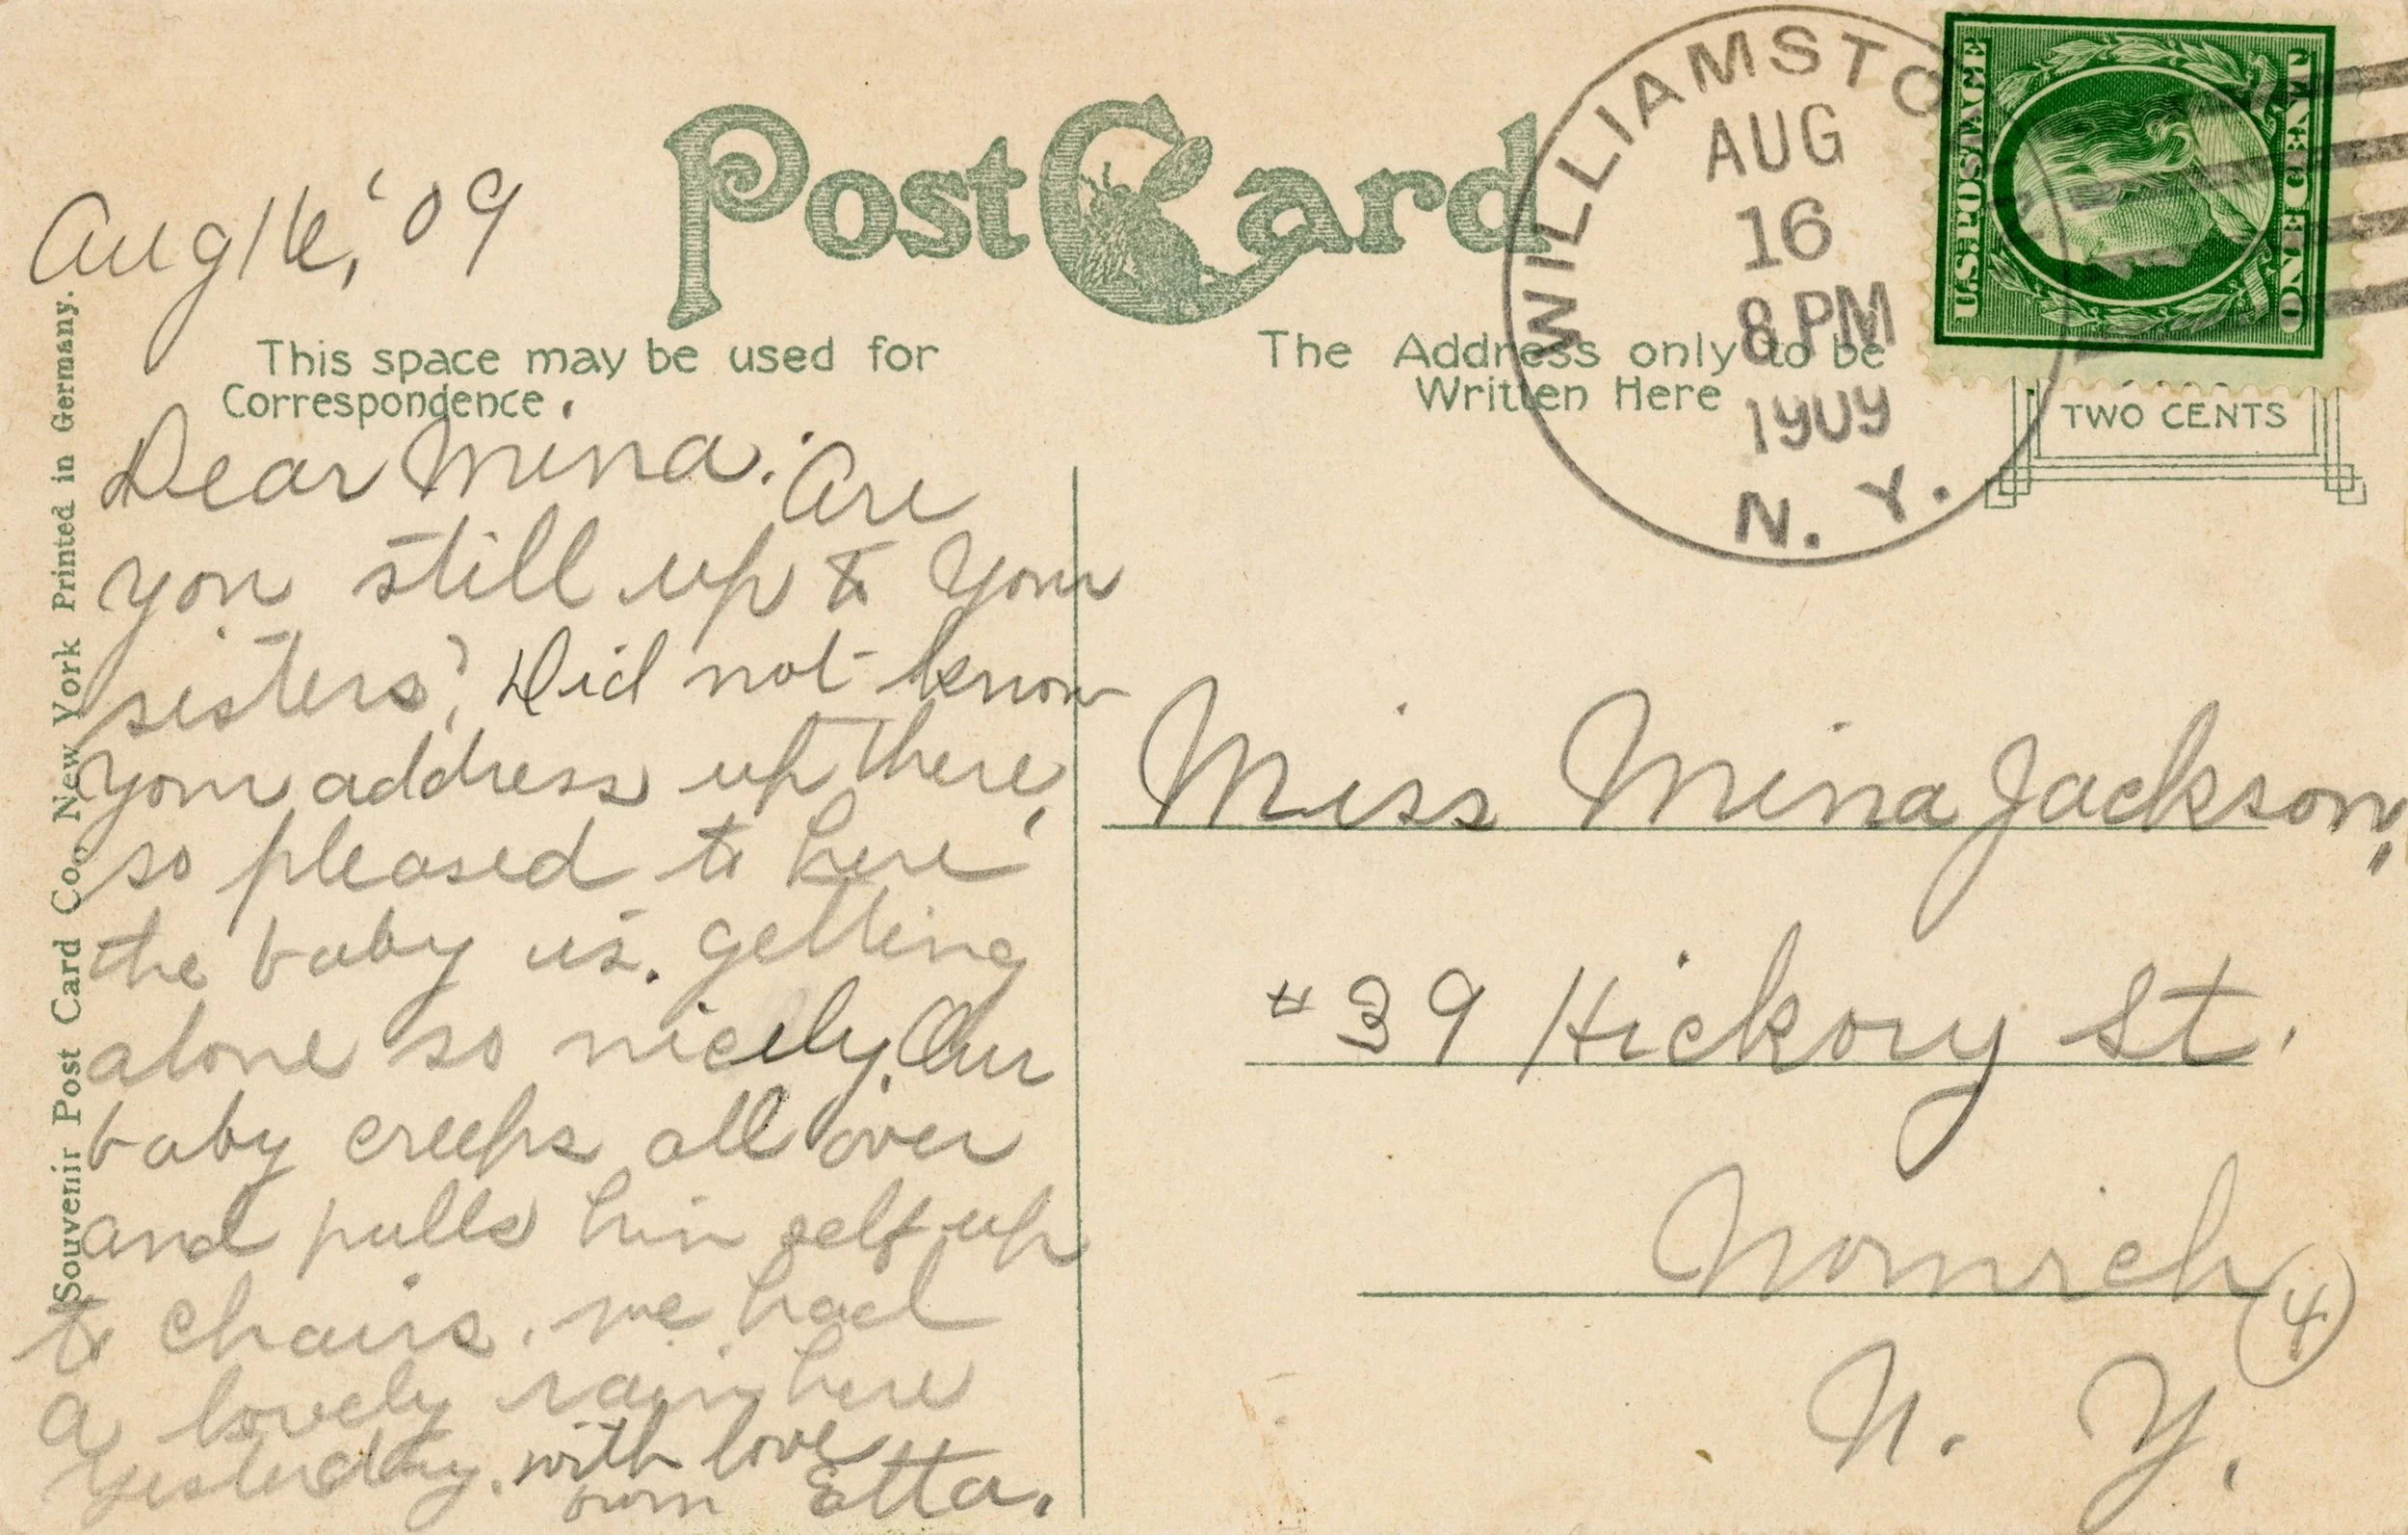 Aug 16, '09
Post Card
This space may be used for
Correspondence.
The Address only to be
Written Here
WILLIAMSTO
AUG
16
8 PM
1909
N. Y.
U.S. POSTAGE
ONE CENT
TWO CENTS
Souvenir Post Card Co., New York Printed in Germany.
Dear Mina: Are
you still up to your
sisters? Did not know
your address up there,
so pleased to here
the baby is. getting
alone so nicely. Our
baby creeps all over
and pulls him self up
to chairs. we had
a lovely rain here
yesterday. with love
Etta.
Miss Mina Jackson,
#39 Hickory St.
Norwich
(4)
N. Y.